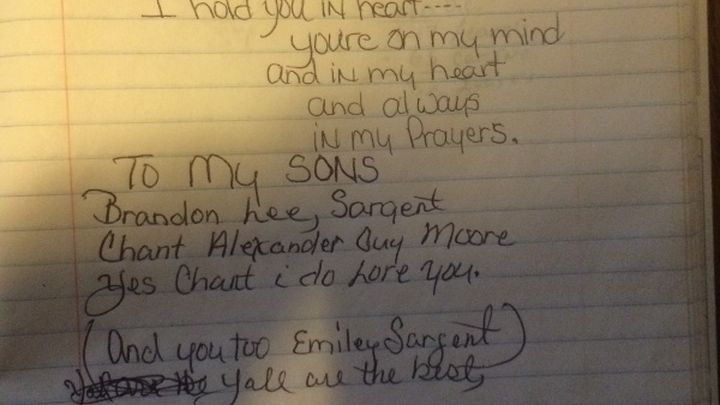 I hold you IN heart----
youre on my mind
and iN my heart
and always
iN my Prayers.
To My SONS
Brandon Lee, Sargent
Chant Alexander Guy Moore
Yes Chant i do Love you.
(And you too Emiley Sargent)
Yall are the best,